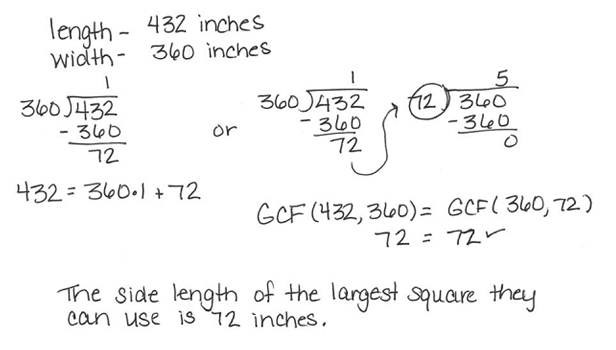 length - 432 inches
width - 360 inches
1
360)432
- 360
72
432 = 360·1 + 72
or
1
360)432
- 360
72
5
72)360
-360
0
GCF(432, 360) = GCF(360, 72)
72 = 72 ✓
The side length of the largest square they
can use is 72 inches.